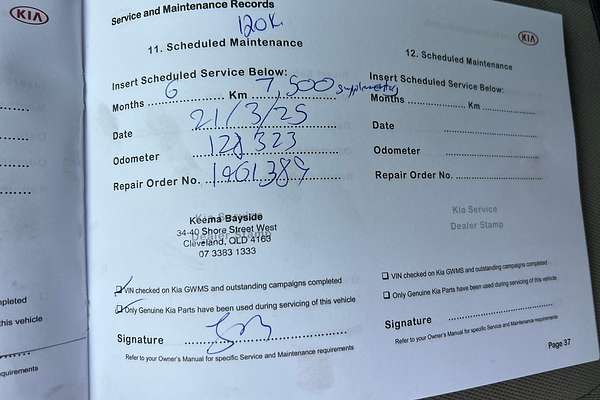 KIA
Service and Maintenance Records
120K
11. Scheduled Maintenance
Insert Scheduled Service Below:
Months 6 Km 7,500 supplementary
Date 21/3/25
Odometer 128 323
Repair Order No. 1961389
Kia Service
Dealer Stamp
Keema Bayside
34-40 Shore Street West
Cleveland, QLD 4163
07 3383 1333
VIN checked on Kia GWMS and outstanding campaigns completed
Only Genuine Kia Parts have been used during servicing of this vehicle
Signature
Refer to your Owner's Manual for specific Service and Maintenance requirements
KIA
12. Scheduled Maintenance
Insert Scheduled Service Below:
Months Km
Date
Odometer
Repair Order No.
Kia Service
Dealer Stamp
VIN checked on Kia GWMS and outstanding campaigns completed
Only Genuine Kia Parts have been used during servicing of this vehicle
Signature
Refer to your Owner's Manual for specific Service and Maintenance requirements
Page 37